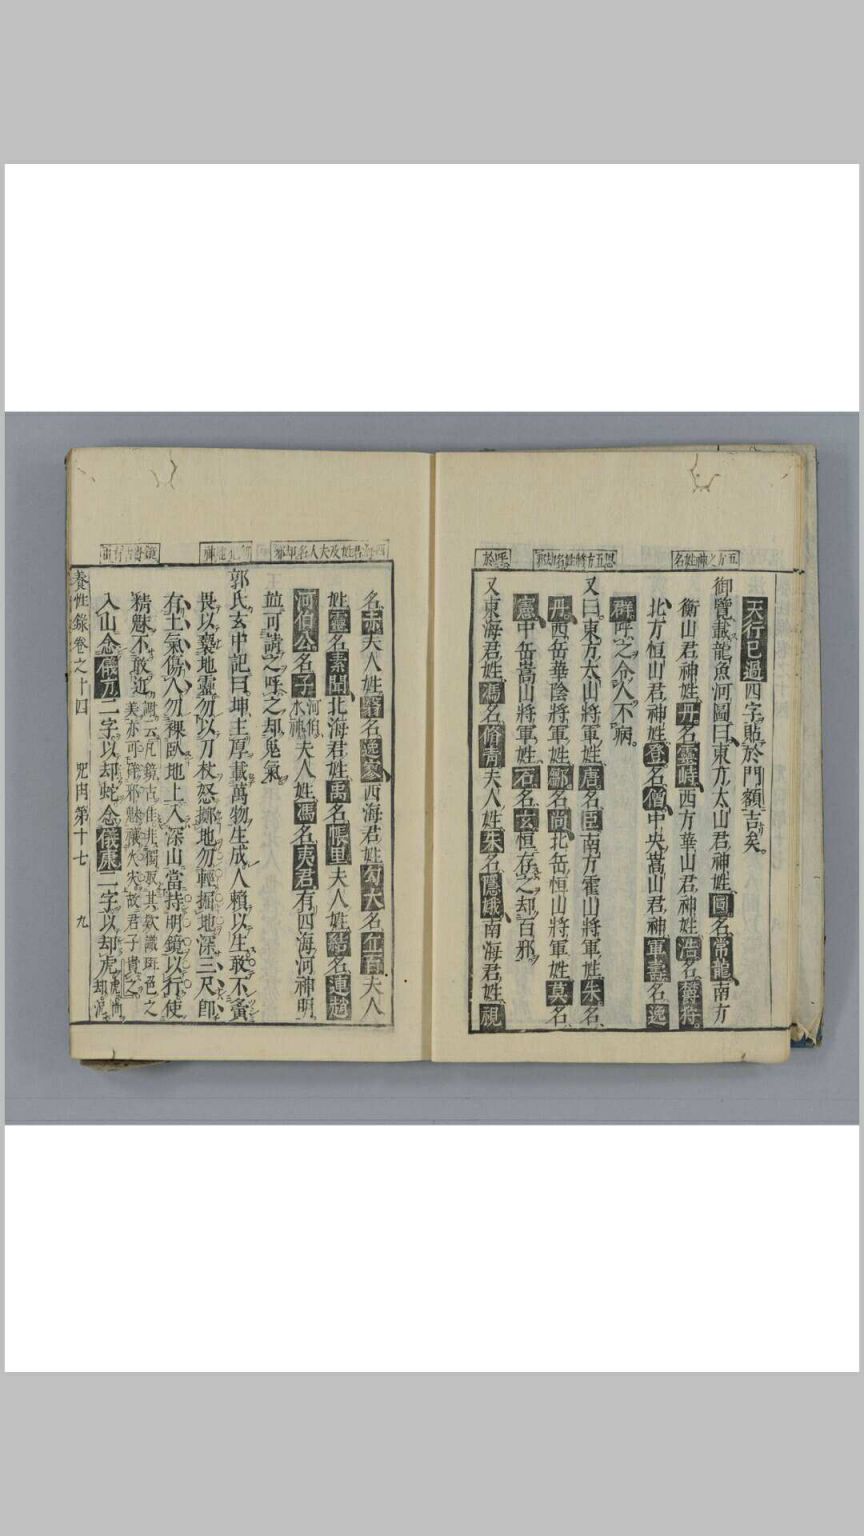 五方之神姓名
思五方將姓名却邪
呼於
天行已過四字貼於門額吉矣
御覽載龍魚河圖曰東方太山君神姓圓名常龍南方
衡山君神姓丹名靈峙西方華山君神姓浩名鬱狩
北方恒山君神姓登名僧中央嵩山君神軍壽名逸
群呼之令人不病
又曰東方太山將軍姓唐名臣南方霍山將軍姓朱名
丹西岳華陰將軍姓鄒名尚北岳恒山將軍姓莫名
惠中岳嵩山將軍姓石名玄恒存之却百邪
又東海君姓馮名脩青夫人姓朱名隱娥南海君姓視
四海君姓及夫人名却邪
名赤夫人姓翳名逸寥西海君姓勾大名丘百夫人
姓靈名素聞北海君姓禹名帳里夫人姓結名連趙
河伯公名子河伯水神夫人姓馮名夷君有四海河神明
並可請之呼之却鬼氣
郭氏玄中記曰坤主厚載萬物生成人賴以生敢不
畏以褻地靈勿以刀杖怒擲地勿輕掘地深三尺卽
有土氣傷人勿裸臥地上入深山當持明鏡以行使
精魅不敢近
入山念儀方二字以却蛇念儀康二字以却虎
養性錄卷之十四 咒門第十七 九